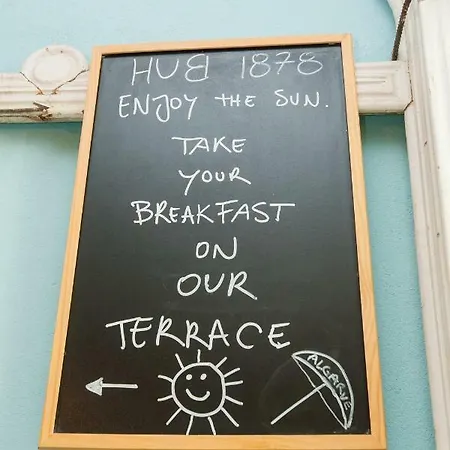 HUB 1878
ENJOY THE SUN.
TAKE
YOUR
BREAKFAST
ON
OUR
TERRACE
ALGARVE